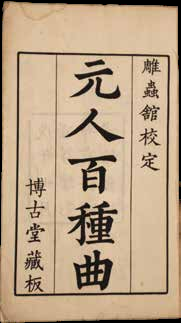 雕蟲館校定
元人百種曲
博古堂藏板